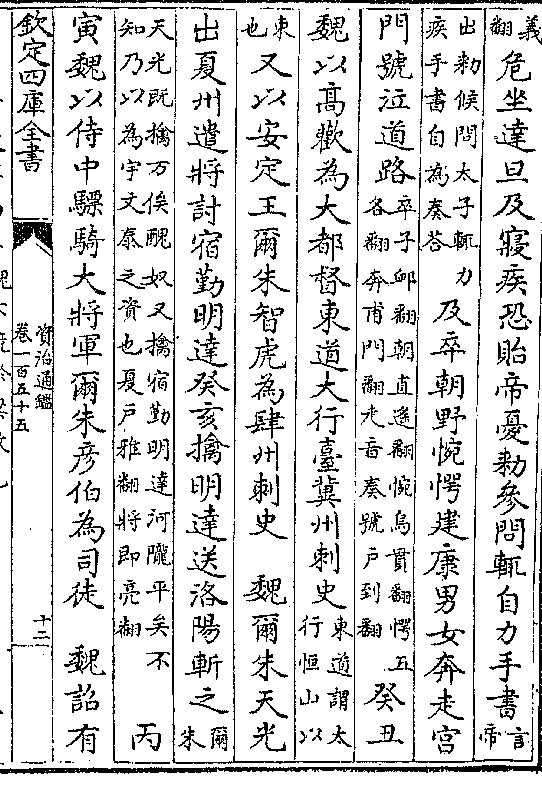 義翻危坐達旦及寢疾恐貽帝憂勅參問輒自力手書言帝
出勅候問太子輒力疾手書自為奏荅及卒朝野惋愕建康男女奔走宮
門號泣道路卒子卹翻朝直遥翻惋烏貫翻愕五各翻奔甫門翻走音奏號戶到翻癸丑
魏以高歡為大都督東道大行臺冀州刺史東道謂太行恒山以
東也又以安定王爾朱智虎為肆州刺史　魏爾朱天光
出夏州遣將討宿勤明達癸亥擒明達送洛陽斬之爾朱
天光既擒万俟醜奴又擒宿勤明達河隴平矣不知乃以為宇文泰之資也夏戶雅翻將即亮翻　丙
寅魏以侍中驃騎大將軍爾朱彥伯為司徒　魏詔有
欽定四庫全書
資治通鑑
卷一百五十五
十二